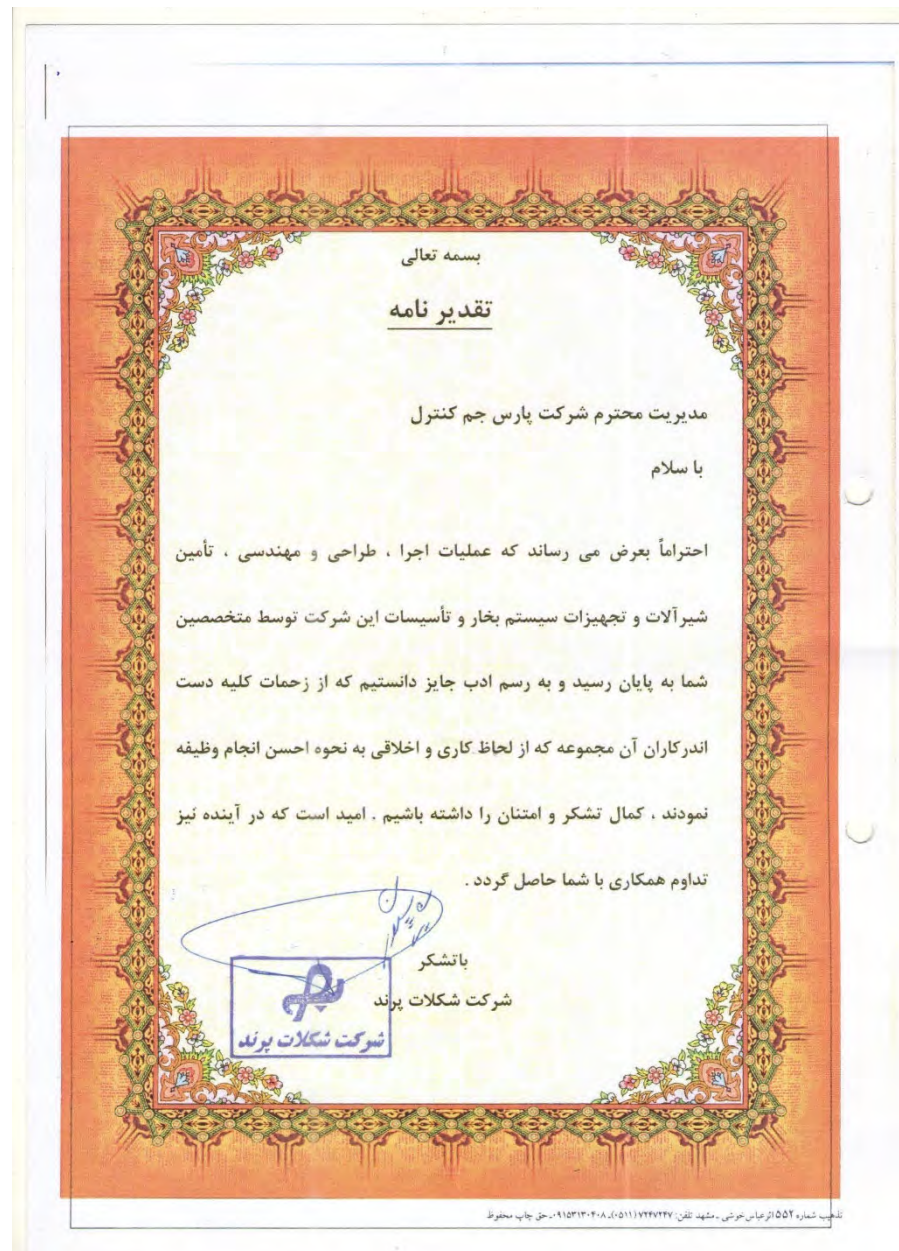 بسمه تعالی
تقدیر نامه
مدیریت محترم شرکت پارس جم کنترل
با سلام
احتراماً بعرض می رساند که عملیات اجرا ، طراحی و مهندسی ، تأمین
شیرآلات و تجهیزات سیستم بخار و تأسیسات این شرکت توسط متخصصین
شما به پایان رسید و به رسم ادب جایز دانستیم که از زحمات کلیه دست
اندرکاران آن مجموعه که از لحاظ کاری و اخلاقی به نحوه احسن انجام وظیفه
نمودند ، کمال تشکر و امتنان را داشته باشیم . امید است که در آینده نیز
تداوم همکاری با شما حاصل گردد .
باتشکر
شرکت شکلات پرند
شرکت شکلات پرند
تذهیب شماره ۵۵۲ اثر عباس خوشی ـ مشهد تلفن: ۷۲۴۷۲۴۷ (۰۵۱۱) ـ ۰۹۱۵۳۱۳۰۴۰۸ ـ حق چاپ محفوظ